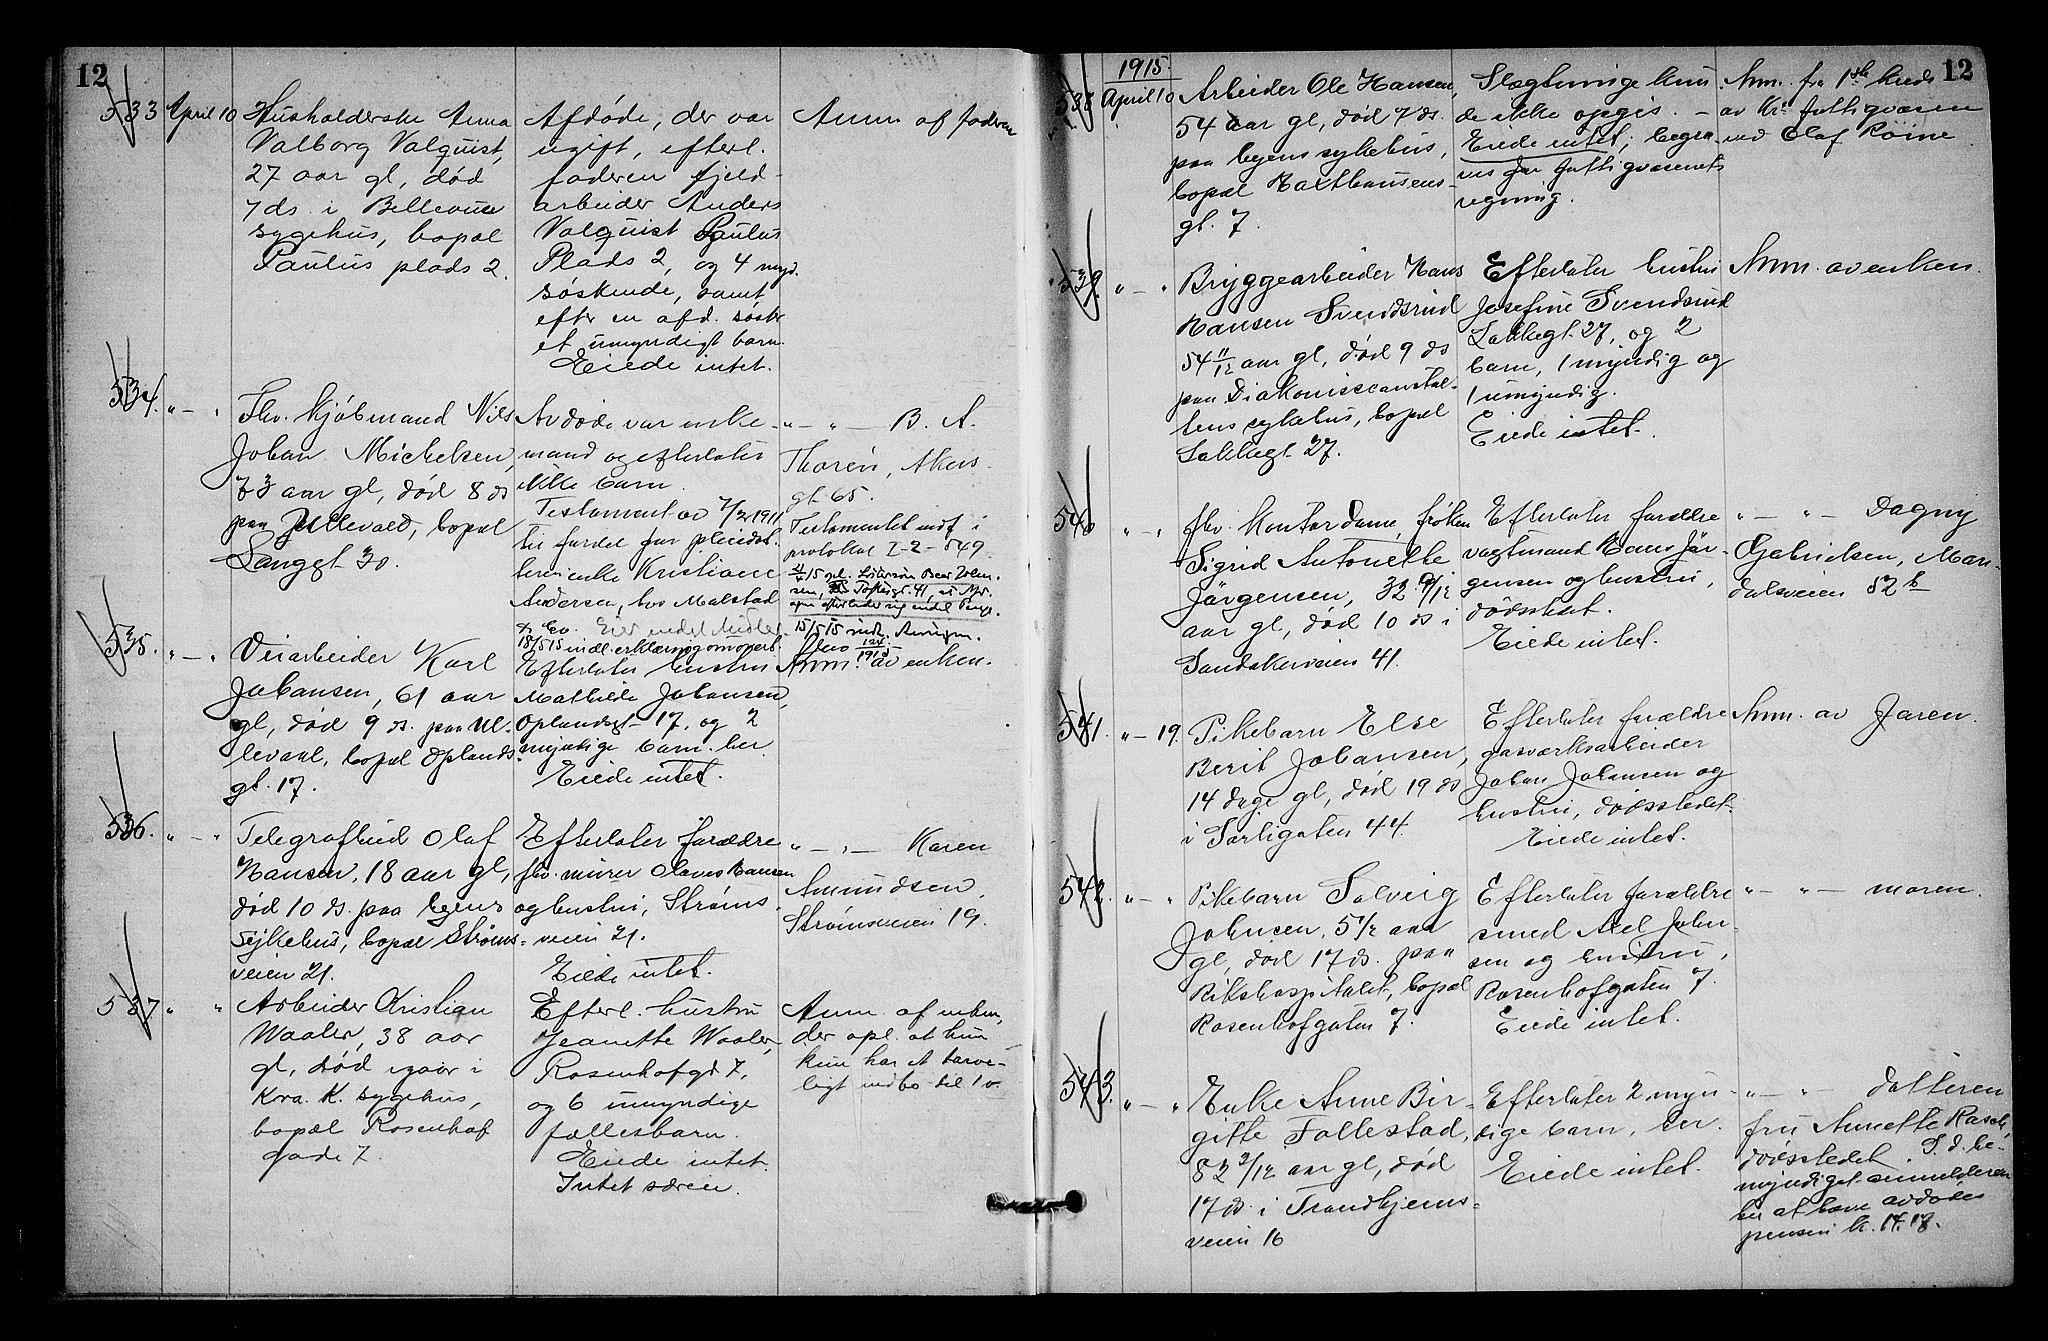 12
533 April 10 Husholderske Anna
Valborg Valquist,
27 aar gl, død
7ds. i Bellevue
sygehus, bopæl
Paulus plads 2.
Afdøde, der var
ugift, efterl.
faderen fjeld-
arbeider Anders
Valquist Paulus
Plads 2, og 4 mynd.
søskende, samt
efter en afd. søster
et umyndigt barn.
Eiede intet.
Anm. af faderen
534. " — " Fhv. kjøbmand Nils
Johan Michelsen,
73 aar gl, død 8 ds
paa Ullevaal, bopæl
Langgt 30.
Avdøde var enke-
mand og efterlater
ikke barn.
Testament av 7/2 1911
til fordel for pleiedat-
teren enke Kristiane
Andersen, hos Malstad
Eier endel
15/5 15 indl. erklæring om
" — " — B. A.
Thorén, Akers-
gt. 65.
Testamentet indf i
protokol I-2-549.
15/5 15 indk.
1915
535. " — " Veiarbeider Karl
Johansen, 61 aar
gl, død 9 ds. paa Ul-
levaal, bopæl Oplands-
gt. 17.
Efterlater hustru
Mathilde Johansen,
Oplandsgt 17, og 2
myndige barn. her
Eiede intet.
Anm. av enken.
536. " — " Telegrafbud Olaf
Hansen, 18 aar gl,
død 10 ds. paa byens
sykehus, bopæl Strøms-
veien 21.
Efterlater forældre
fhv. murer Olaves Hansen
og hustru, Strøms-
veien 21.
Eiede intet.
" — " — Karen
Amundsen,
Strømsveien 19.
537 " " Arbeider Kristian
Waaler, 38 aar
gl, død igaar i
Kra. K. sygehus,
bopæl Rosenhof
gade 7.
Efterl. hustru
Jeanette Waaler,
Rosenhofgd 7,
og 6 umyndige
fællesbarn.
Eiede intet.
Intet særeie.
Anm. af enken,
der opl. at hun
kun har et tarve-
ligt indbo til 1 v.
1915.
12
538 April 10 Arbeider Ole Hansen,
54 aar gl, død 7 ds.
paa byens sykehus,
bopæl Maltheusens-
gt. 7.
Slægtninge kun-
de ikke opgis. —
Eiede intet, begra-
ves for fattigvæsenets
regning.
Anm. fra 1ste kreds
av Kra fattigvæsen
ved Olaf Røine
539. " — " Bryggearbeider Hans
Hansen Svendsrud
54 11/12 aar gl, død 9 ds
paa Diakonisseanstal-
tens sykehus, bopæl
Lakkegt. 27.
Efterlater hustru
Josefine Svendsrud
Lakkegt. 27, og 2
barn, 1 myndig og
1 umyndig.
Eiede intet.
Anm. av enken.
540 " " fhv. kontordame, frøken
Sigrid Antonette
Jørgensen, 32 9/12
aar gl, død 10 ds i
Sandakerveien 41.
Efterlater forældre
vagtmand Hans Jør-
gensen og hustru,
dødsstedet.
Eiede intet.
" — " — Dagny
Gabrielsen, Mari-
dalsveien 52 b
541. " — 19. Pikebarn Else
Berit Johansen,
14 dage gl, død 19 ds
i Sorligaten 44.
Efterlater forældre
gasværksarbeider
Johan Johansen og
hustru, dødsstedet.
Eiede intet.
Anm. av faren.
542. " — " Pikebarn Solveig
Johnsen, 5 1/2 aar
gl, død 17 ds. paa
Rikshospitalet, bopæl
Rosenhofgaten 7.
Efterlater forældre
smed Axel John-
sen og hustru,
Rosenhofgaten 7.
Eiede intet.
" — " — moren.
543. " — " Enke Anne Bir-
gitte Follestad,
82 2/12 aar gl, død
17 ds. i Trondhjems-
veien 16
Efterlater 2 myn-
dige barn, her.
Eiede intet.
" — " — datteren
fru Annette Rasch,
dødsstedet. S. d. be-
myndiget anmelderen
til at hæve avdødes
pension kr. 17.18.